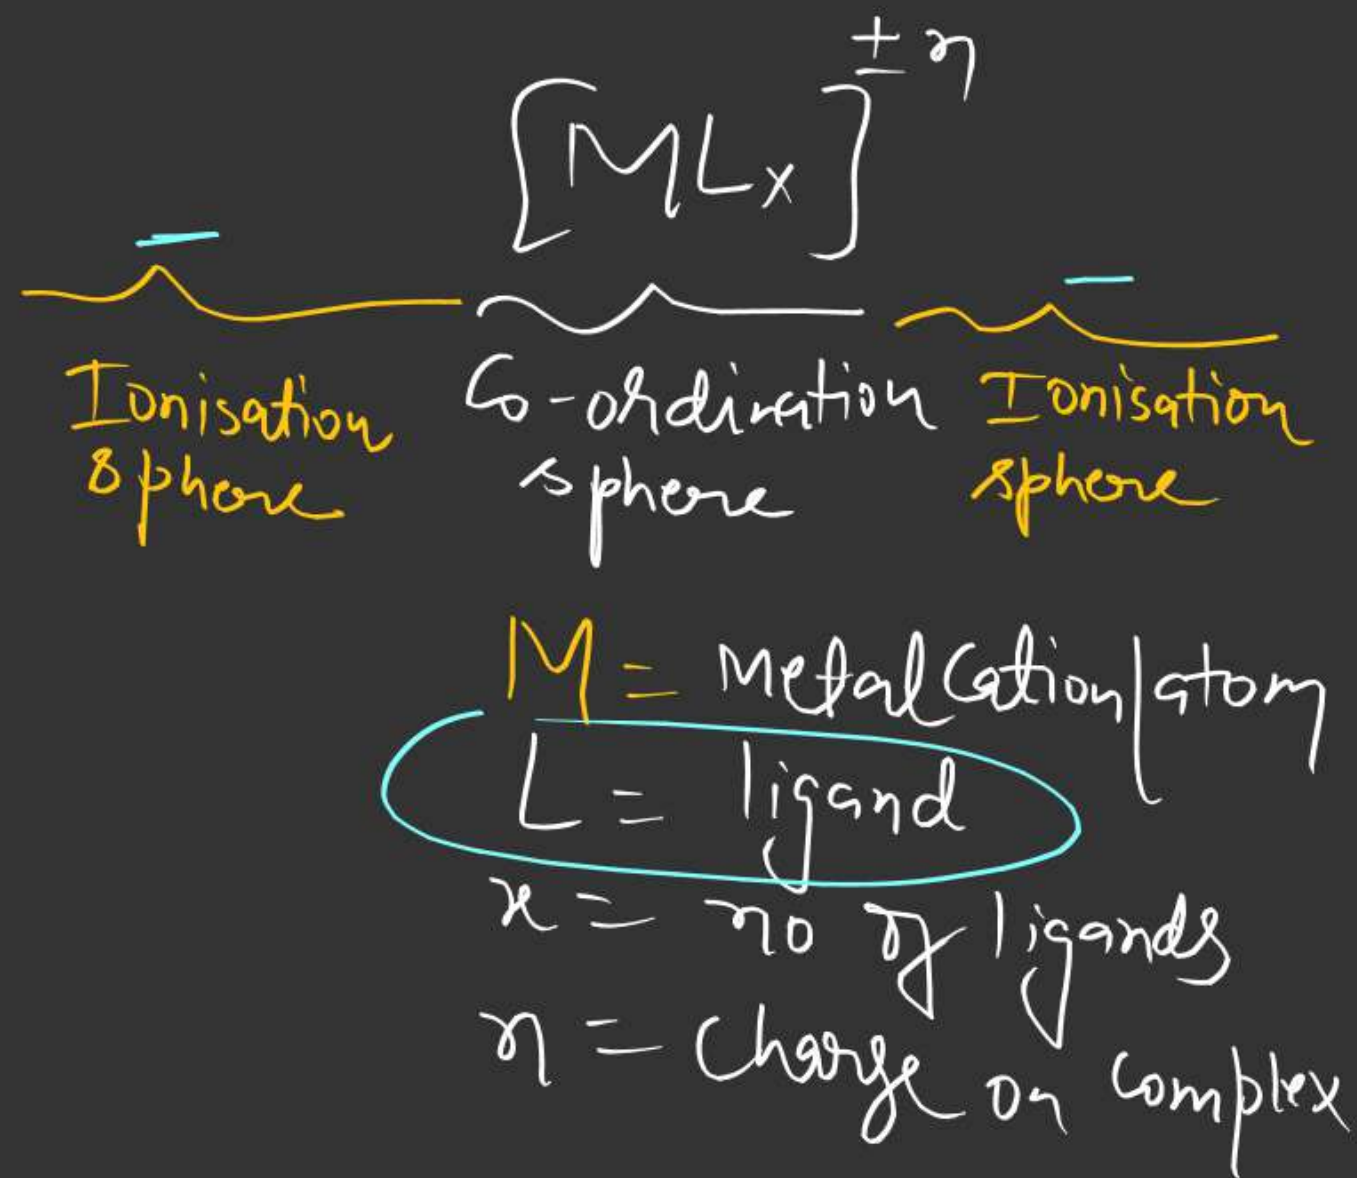 [MLx]± n
Ionisation sphere
Co-ordination sphere
Ionisation sphere
M = Metal Cation/atom
L = ligand
x = no of ligands
n = Charge on complex